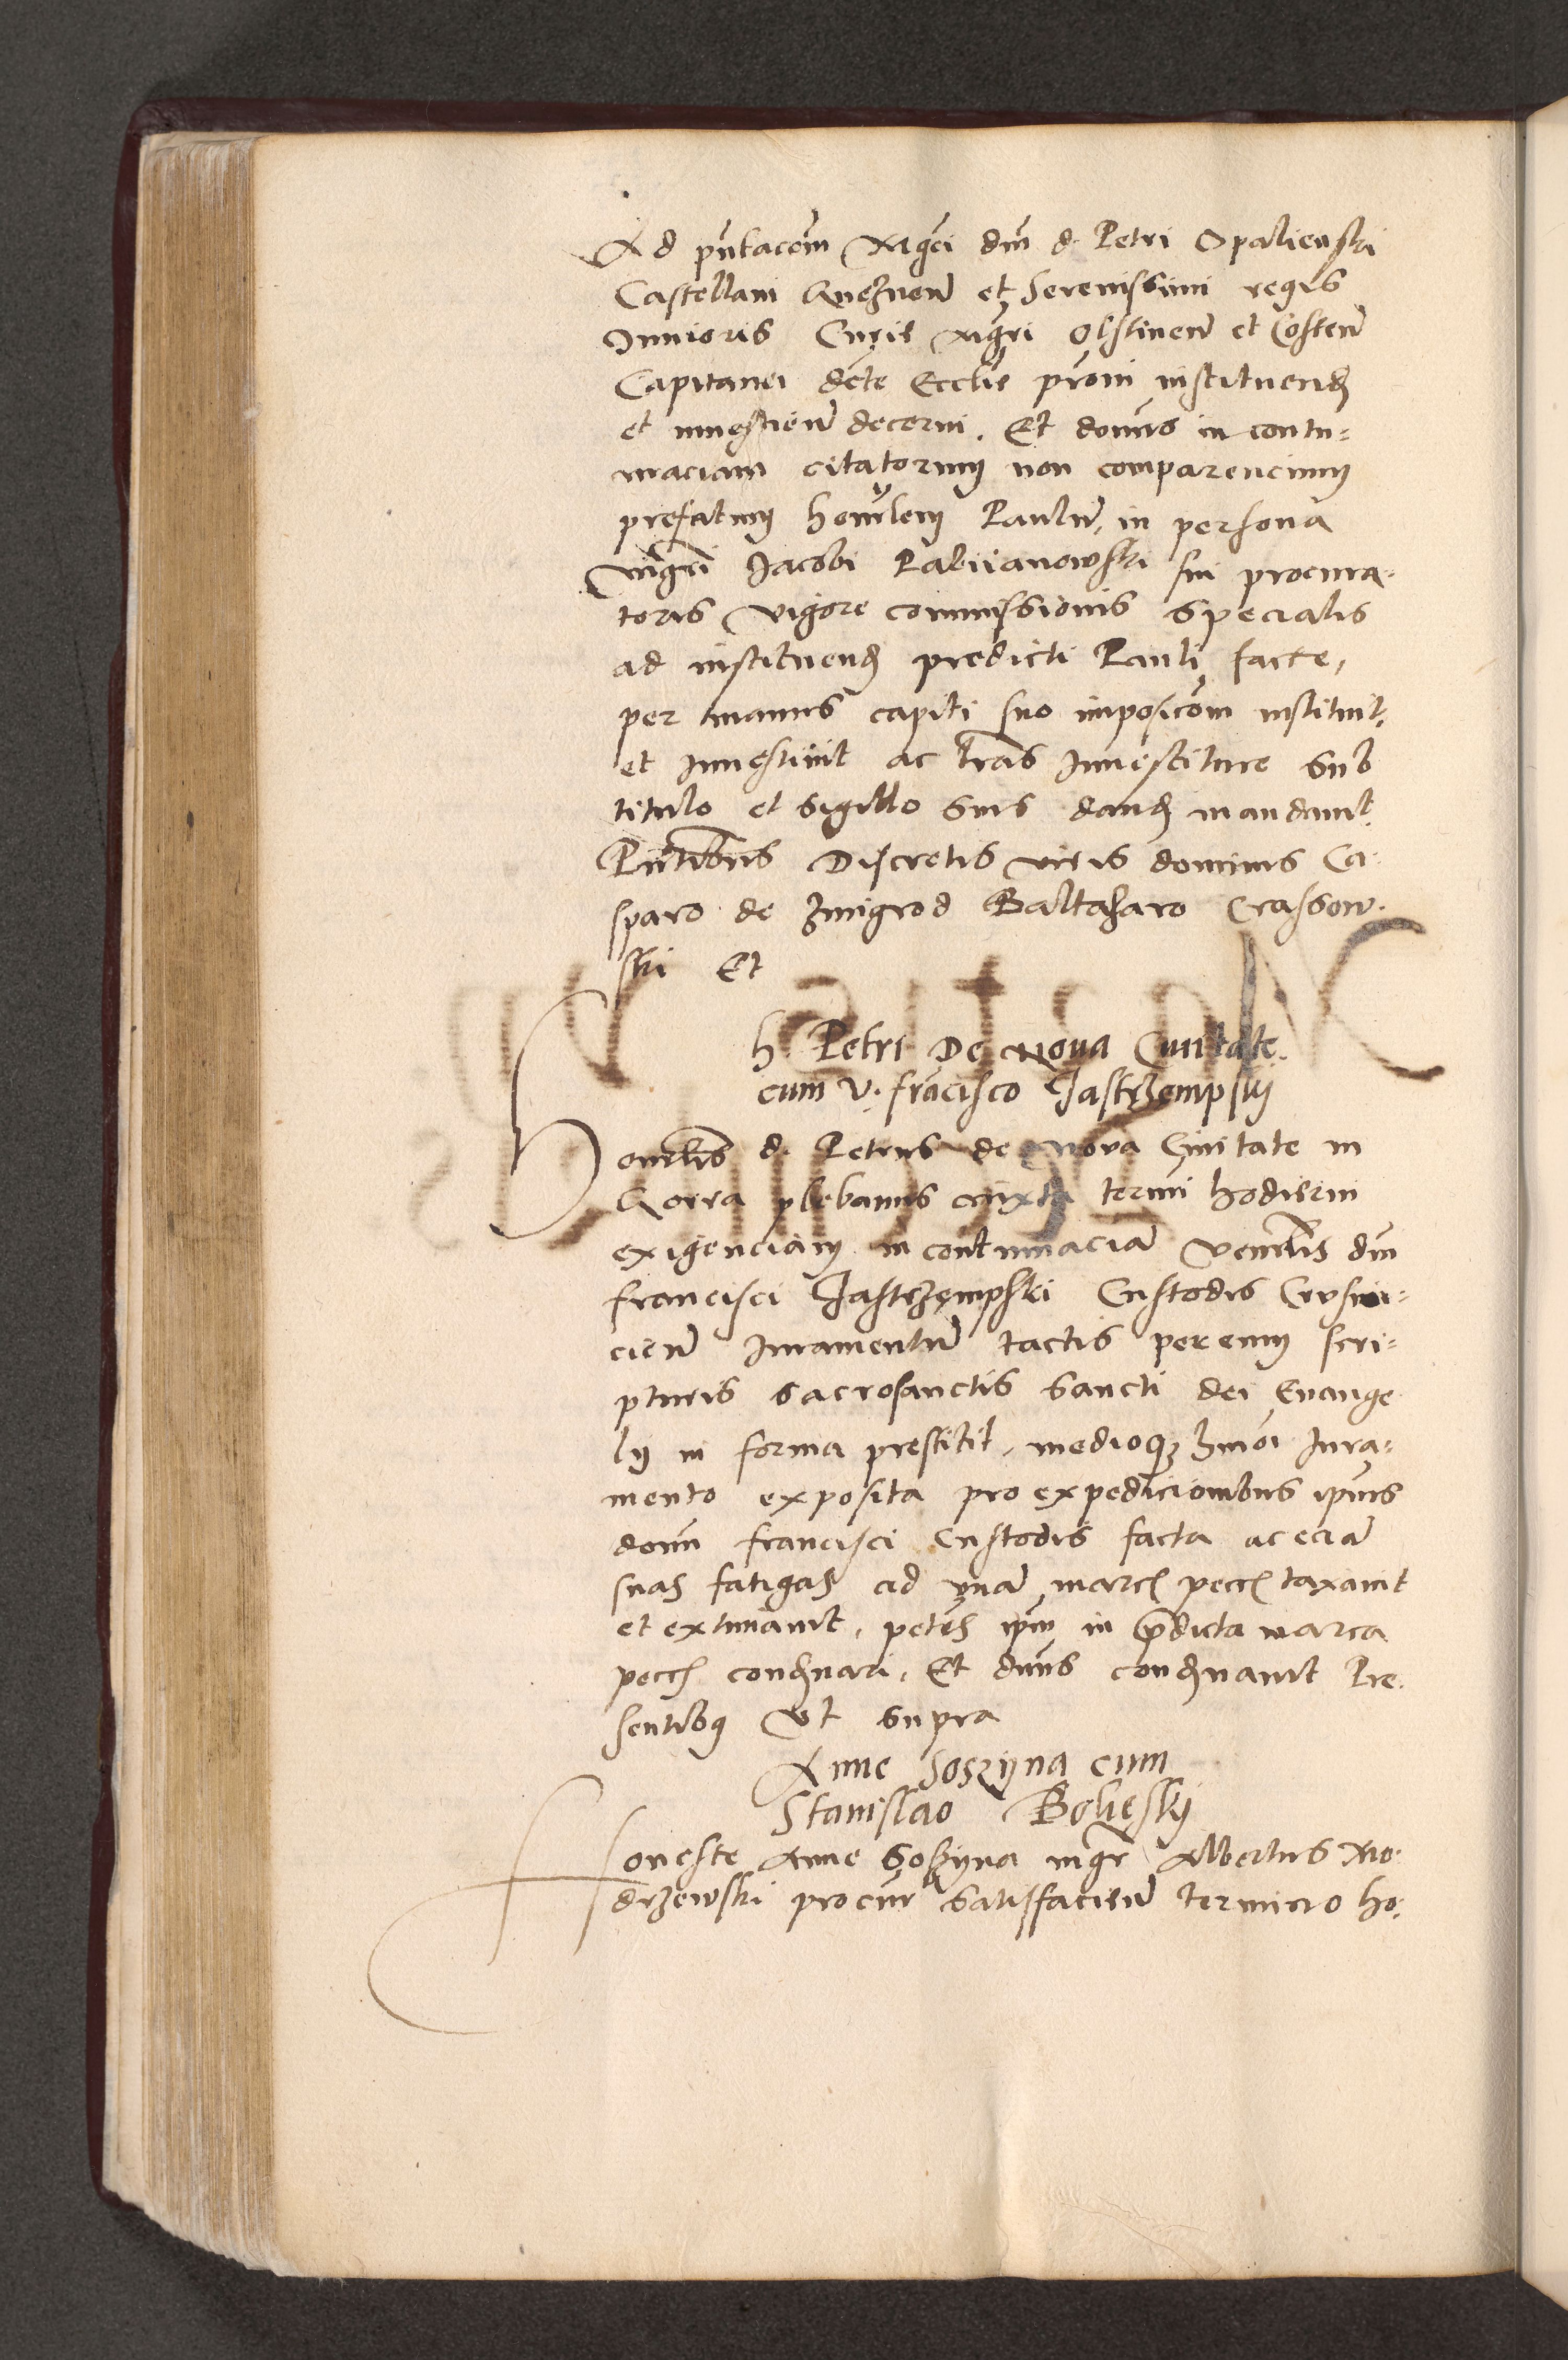 Ad pntacom Mgci dni d. Petri Opalienski
Castellani Gneznen et Serenissimi regis
Junioris Curie Mgri Olstinen et Costen
Capitanei dcte Ecclie prom instituend
et inuestien decerni. Et dominus in contu=
maciam citatorum non comparencium
prefatum honorlem Paulum in persona
Mgri Jacobi Pabiianowski sui procura-
toris vigore commissionis specialis
ad instituend predicti Pauli facte,
per manus capiti suo imposicom instituit
et Inuestiuit ac lras Inuestiture sub
titulo et sigillo suis dand mandauit
Pntibus Discretis viris dominis Ca-
sparo de Zmigrod Baltasaro Crassow-
ski Et
h. Petri De Noua Ciuitate
cum v. francisco Jastrzempskij
Honorlis d. Petrus de Nova Ciuitate in
Gorra plebanus iuxta termi hodierni
exigenciam in contumaciam venerlis dni
francisci Jastrzempski Custodis Crusui-
cien Juramentum tactis per eum scri-
pturis sacrosanctis sancti dei Euange
lij in forma prestitit, medioq hmoi Jura-
mento exposita pro expedicionibus ipius
domi francisci Custodis facta ac ecia
suas fatigas ad vna marc pecc taxauit
et extimauit, petens ipm in predicta marca
pecc condnari, Et dnus condnauit Pre-
sentibq Vt supra
Anne Soszijna cum
Stanislao Boheskij
Honeste Anne Soszijna mgr Albertus Mo-
drzewski procur satisfacien termino ho-